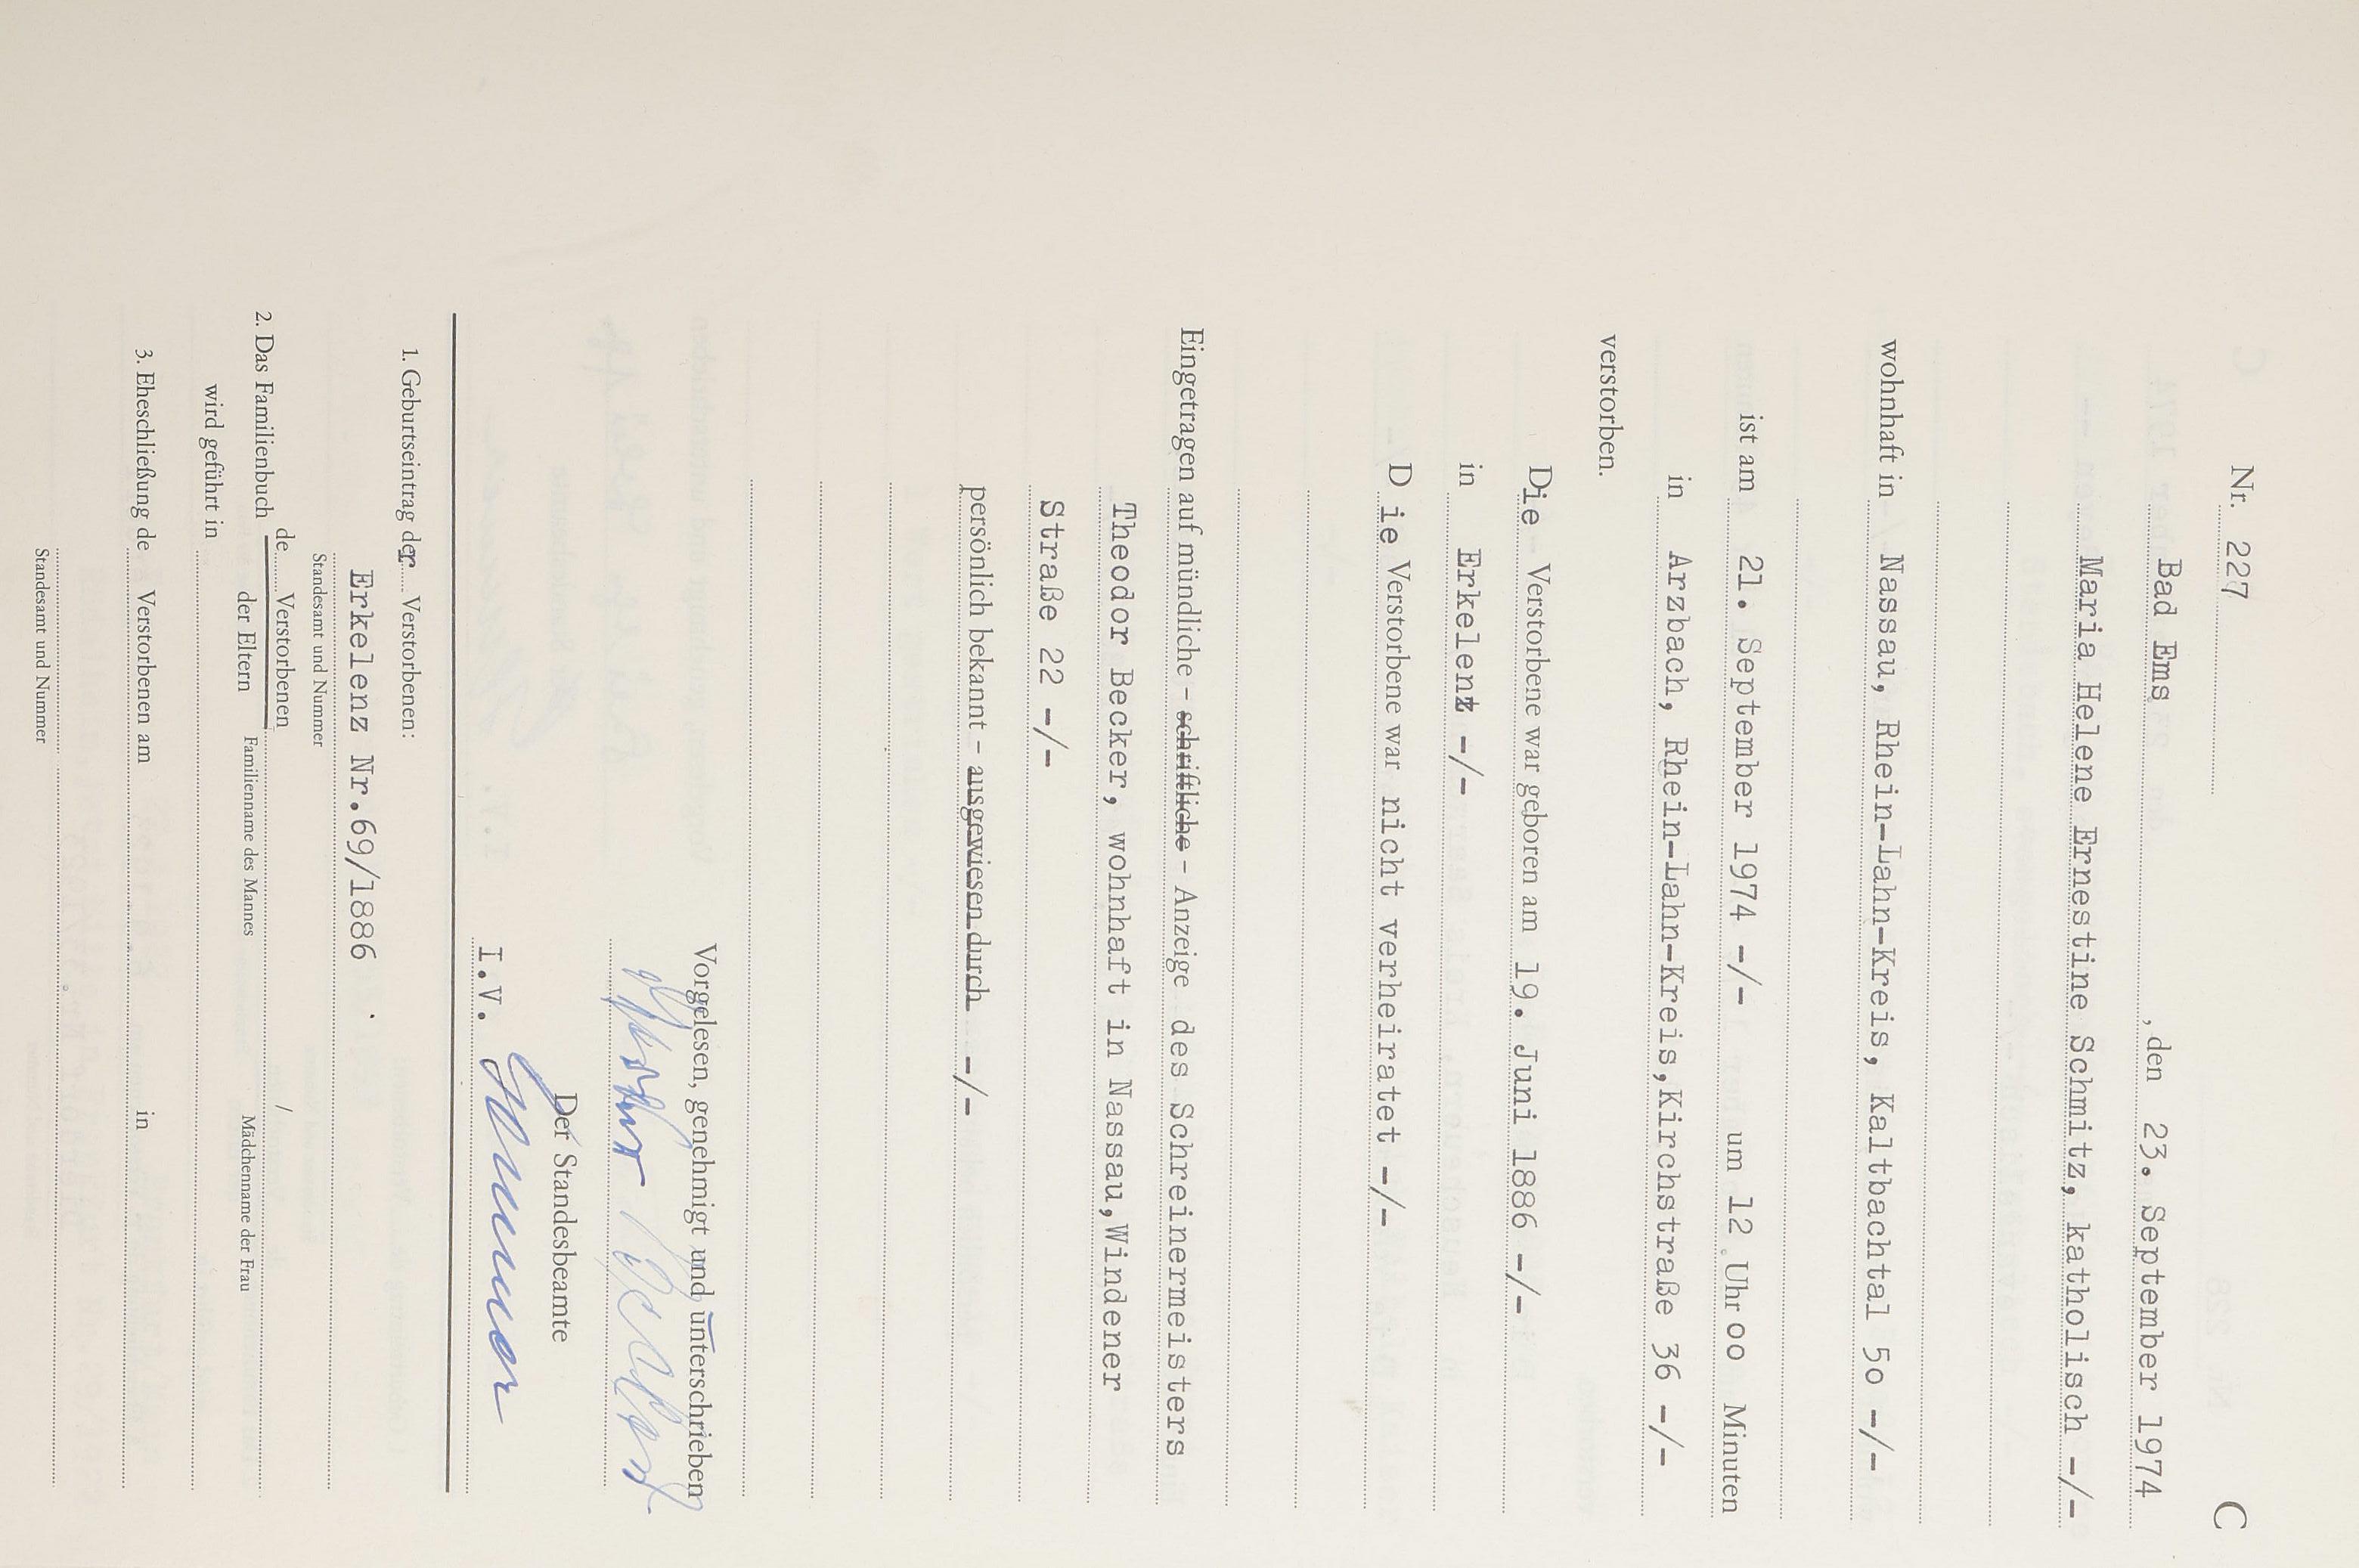 Nr. 227 C
Bad Ems , den 23. September 1974
Maria Helene Ernestine Schmitz, katholisch -/-
wohnhaft in Nassau, Rhein-Lahn-Kreis, Kaltbachtal 5o -/-
ist am 21. September 1974 -/- um 12 Uhr oo Minuten
in Arzbach, Rhein-Lahn-Kreis,Kirchstraße 36 -/-
verstorben.
Die Verstorbene war geboren am 19. Juni 1886 -/-
in Erkelenz -/-
D ie Verstorbene war nicht verheiratet -/-
Eingetragen auf mündliche - schriftliche - Anzeige des Schreinermeisters
Theodor Becker, wohnhaft in Nassau,Windener
Straße 22 -/-
persönlich bekannt - ausgewiesen durch -/-
Vorgelesen, genehmigt und unterschrieben
Theodor Becker
Der Standesbeamte
I.V.
1. Geburtseintrag der Verstorbenen:
Erkelenz Nr.69/1886
Standesamt und Nummer
de Verstorbenen /
2. Das Familienbuch
der Eltern Familienname des Mannes Mädchenname der Frau
wird geführt in
3. Eheschließung de Verstorbenen am in
Standesamt und Nummer